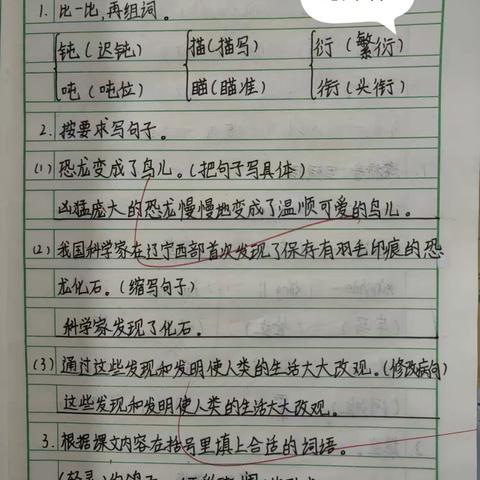 1. 比一比,再组词。
钝(迟钝) 描(描写) 衍(繁衍)
吨(吨位) 瞄(瞄准) 衔(头衔)
2. 按要求写句子。
(1) 恐龙变成了鸟儿。(把句子写具体)
凶猛庞大的恐龙慢慢地变成了温顺可爱的鸟儿。
(2) 我国科学家在辽宁西部首次发现了保存有羽毛印痕的恐
龙化石。(缩写句子)
科学家发现了化石。
(3) 通过这些发现和发明使人类的生活大大改观。(修改病句)
这些发现和发明使人类的生活大大改观。
3. 根据课文内容在括号里填上合适的词语。